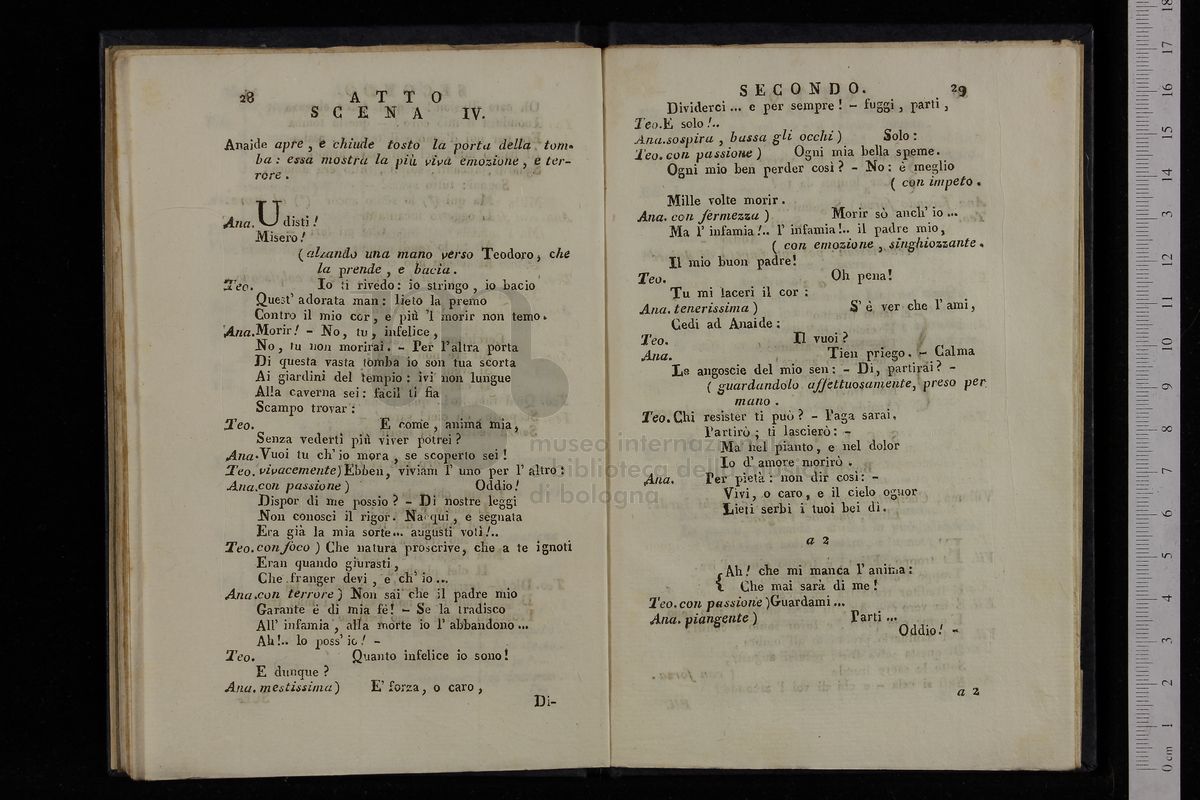 28
ATTO
SCENA IV.
Anaide apre, e chiude tosto la porta della tom-
ba: essa mostra la più viva emozione, e ter-
rore.
Ana. Udisti!
Misero!
(alzando una mano verso Teodoro, che
la prende, e bacia.
Teo. Io ti rivedo: io stringo, io bacio
Quest' adorata man: lieto la premo
Contro il mio cor, e più 'l morir non temo.
Ana. Morir! - No, tu, infelice,
No, tu non morirai. - Per l'altra porta
Di questa vasta tomba io son tua scorta
Ai giardini del tempio: ivi non lungue
Alla caverna sei: facil ti fia
Scampo trovar:
Teo. E come, anima mia,
Senza vederti più viver potrei?
Ana. Vuoi tu ch'io mora, se scoperto sei!
Teo. vivacemente) Ebben, viviam l' uno per l' altro:
Ana. con passione) Oddio!
Dispor di me possio? - Di nostre leggi
Non conosci il rigor. Nacqui, e segnata
Era già la mia sorte... augusti voti!..
Teo. con foco) Che natura proscrive, che a te ignoti
Eran quando giurasti,
Che franger devi, e ch' io...
Ana. con terrore) Non sai che il padre mio
Garante è di mia fè! - Se la tradisco
All' infamia, alla morte io l' abbandono...
Ah!.. lo poss' io! -
Teo. Quanto infelice io sono!
E dunque?
Ana. mestissima) E' forza, o caro,
Di-
SECONDO. 29
Dividerci... e per sempre! - fuggi, parti,
Teo. E solo!..
Ana. sospira, bassa gli occhi) Solo:
Teo. con passione) Ogni mia bella speme.
Ogni mio ben perder così? - No: è meglio
(con impeto.
Mille volte morir.
Ana. con fermezza) Morir sò anch' io...
Ma l' infamia!.. l' infamia!.. il padre mio,
(con emozione, singhiozzante.
Il mio buon padre!
Teo. Oh pena!
Tu mi laceri il cor:
Ana. tenerissima) S' è ver che l' ami,
Cedi ad Anaide:
Teo. Il vuoi?
Ana. Tien priego. - Calma
Le angoscie del mio sen: - Di, partirai? -
(guardandolo affettuosamente, preso per
mano.
Teo. Chi resister ti può? - Paga sarai,
Partirò; ti lascierò: -
Ma nel pianto, e nel dolor
Io d' amore morirò.
Ana. Per pietà: non dir così: -
Vivi, o caro, e il cielo ognor
Lieti serbi i tuoi bei dì.
a 2
{ Ah! che mi manca l' anima:
Che mai sarà di me!
Teo. con passione) Guardami...
Ana. piangente) Parti...
Oddio! -
a 2
museo internazionale
e biblioteca della musica
di bologna
0 cm 1 2 3 4 5 6 7 8 9 10 11 12 13 14 15 16 17 18